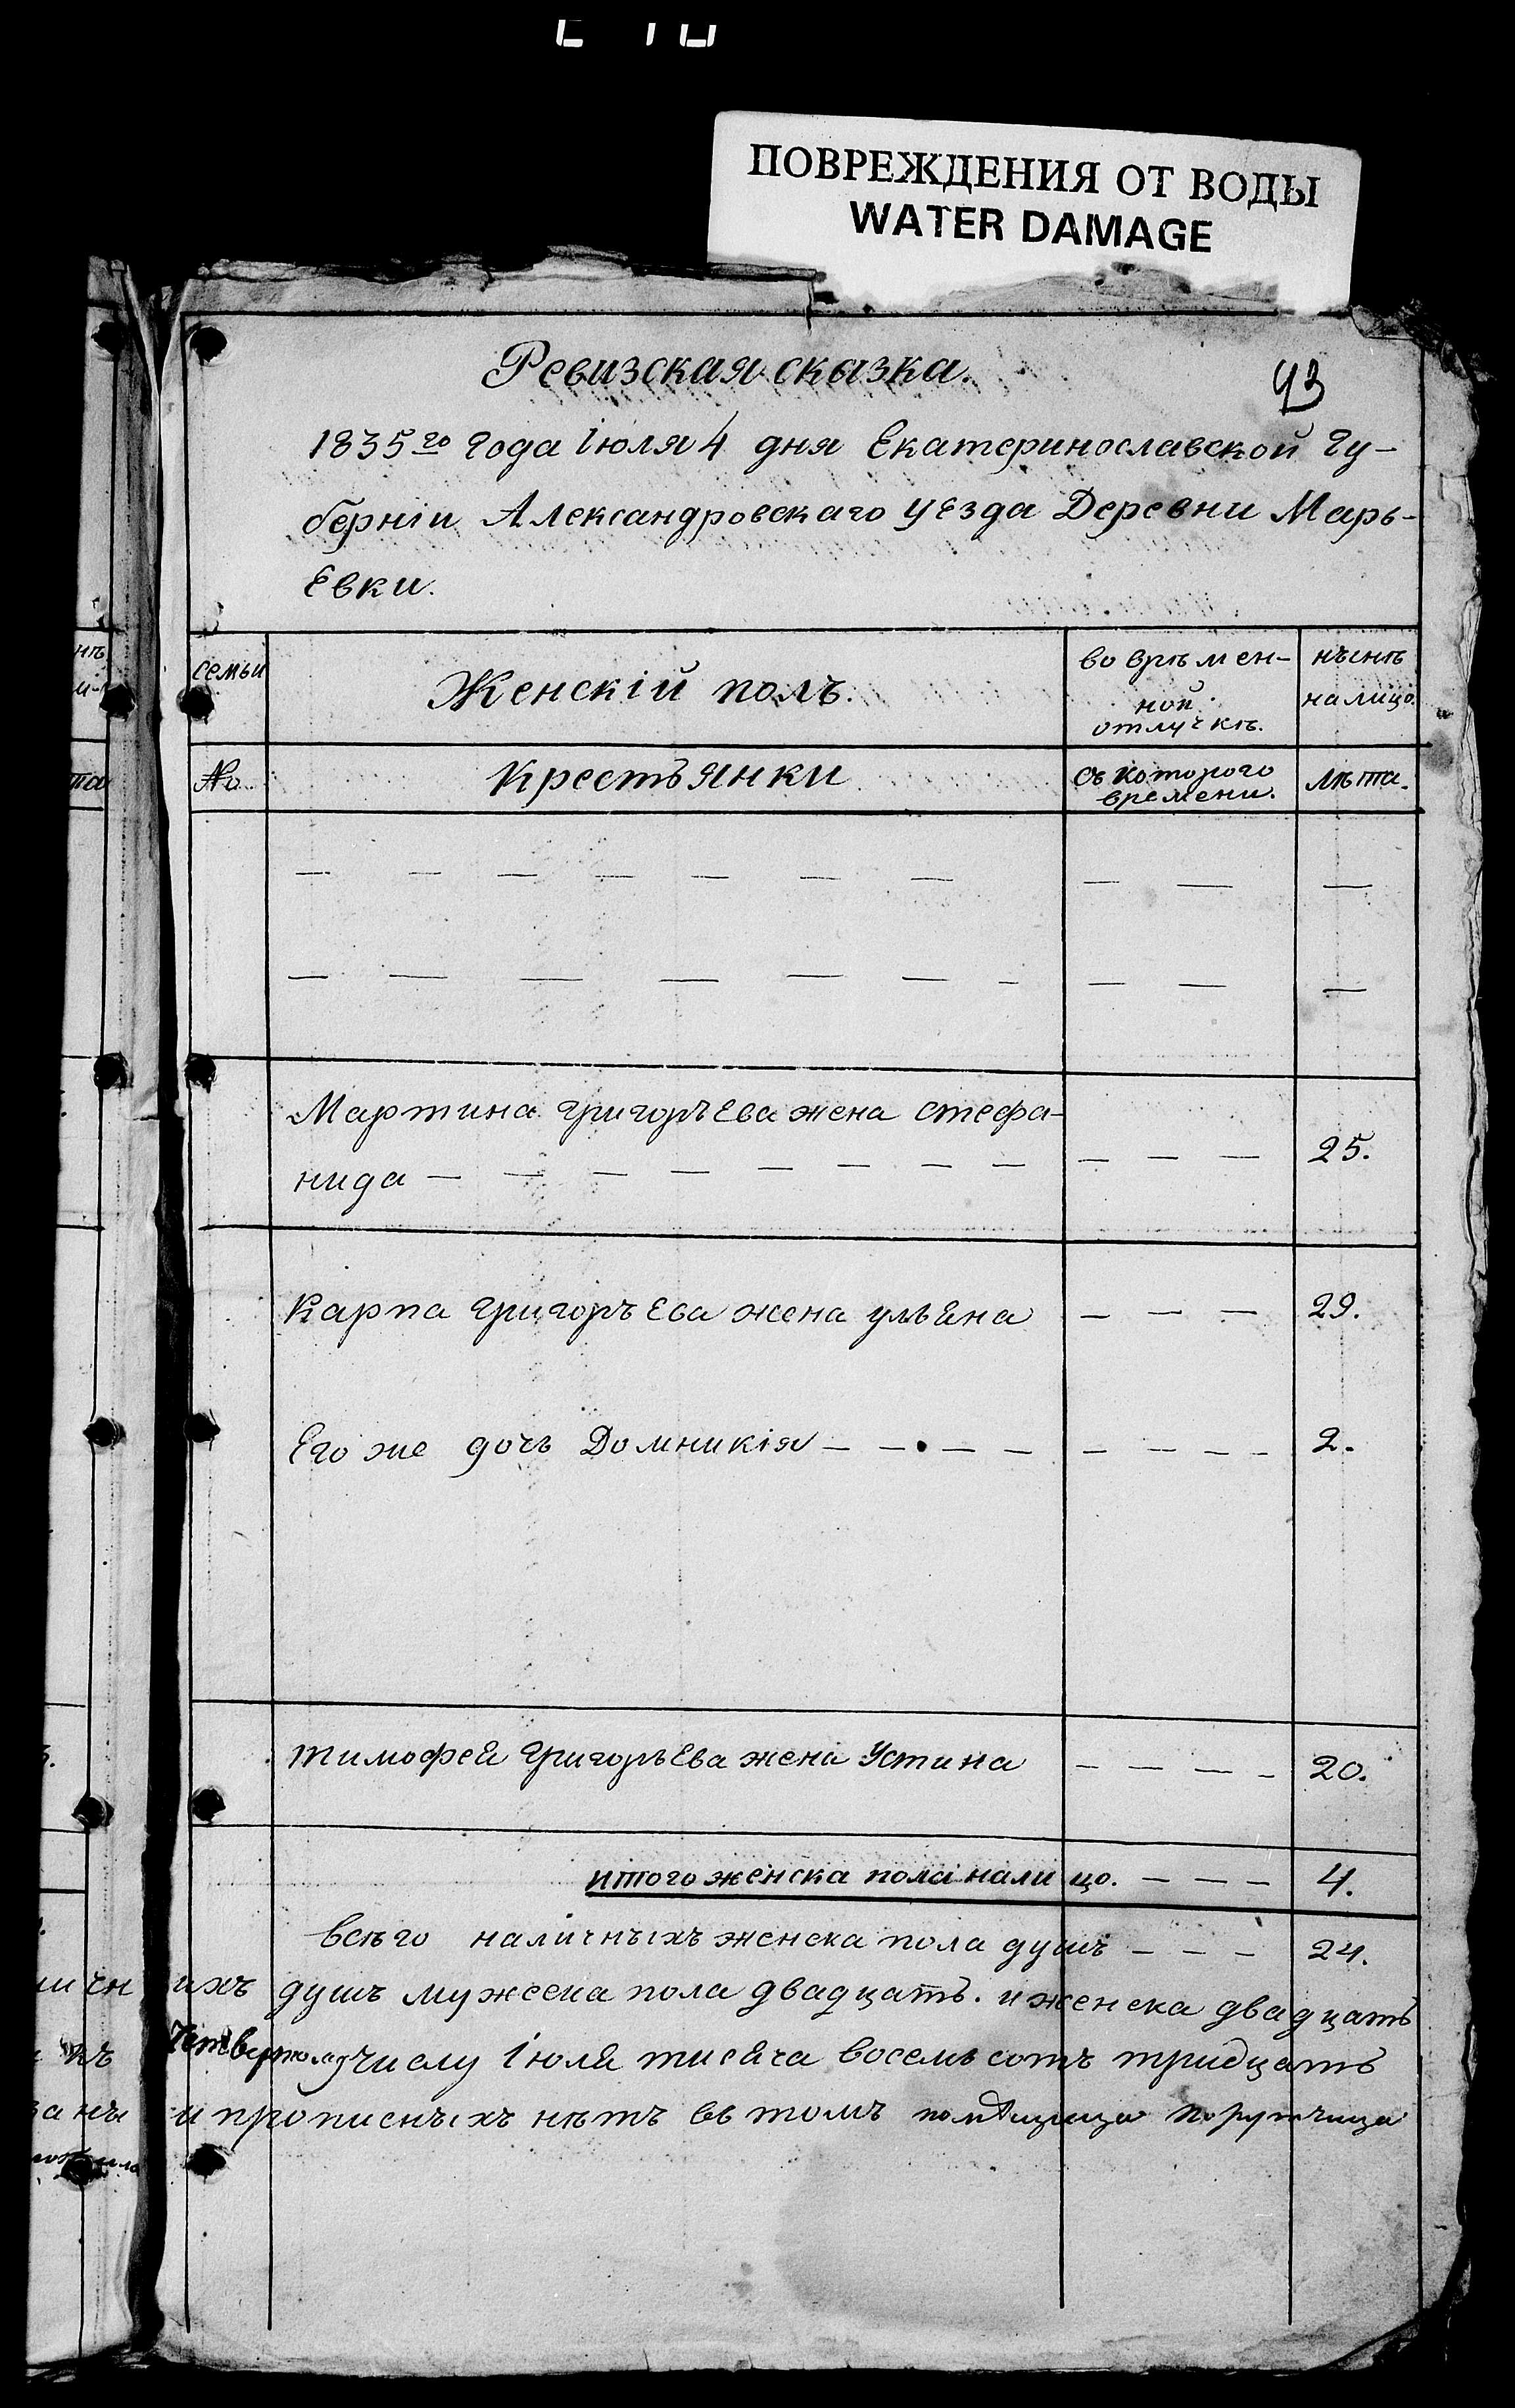 ПОВРЕЖДЕНИЯ ОТ ВОДЫ
WATER DAMAGE
Ревизская сказка.
93
1835го года Iюля 4 дня Екатеринославской Гу-
берніи Александровскаго уезда Деревни Марь-
Евки.
семьи
Женскій полъ.
во врѣмен-
ной
отлучкѣ.
нынѣ
налицо.
№
Крестьянки
съ которого
времени.
лѣта.
Мартина григоръева жена стефа-
нида — — — — — — — — — — — 25.
Карпа григоръева жена ульяна — — — 29.
Его же дочь Домникія — — — — — — — — 2.
тимофея григоръева жена Устина — — — — 20.
итого женска пола налицо. — — — 4.
всѣго наличныхъ женска пола душъ — — — 24.
ихъ душъ мужеска пола двадцать. и женска двадцать
Четвертому числу Iюля тисяча восемъсотъ тридцать
и прописныхъ нѣтъ въ томъ помѣщица порутчица